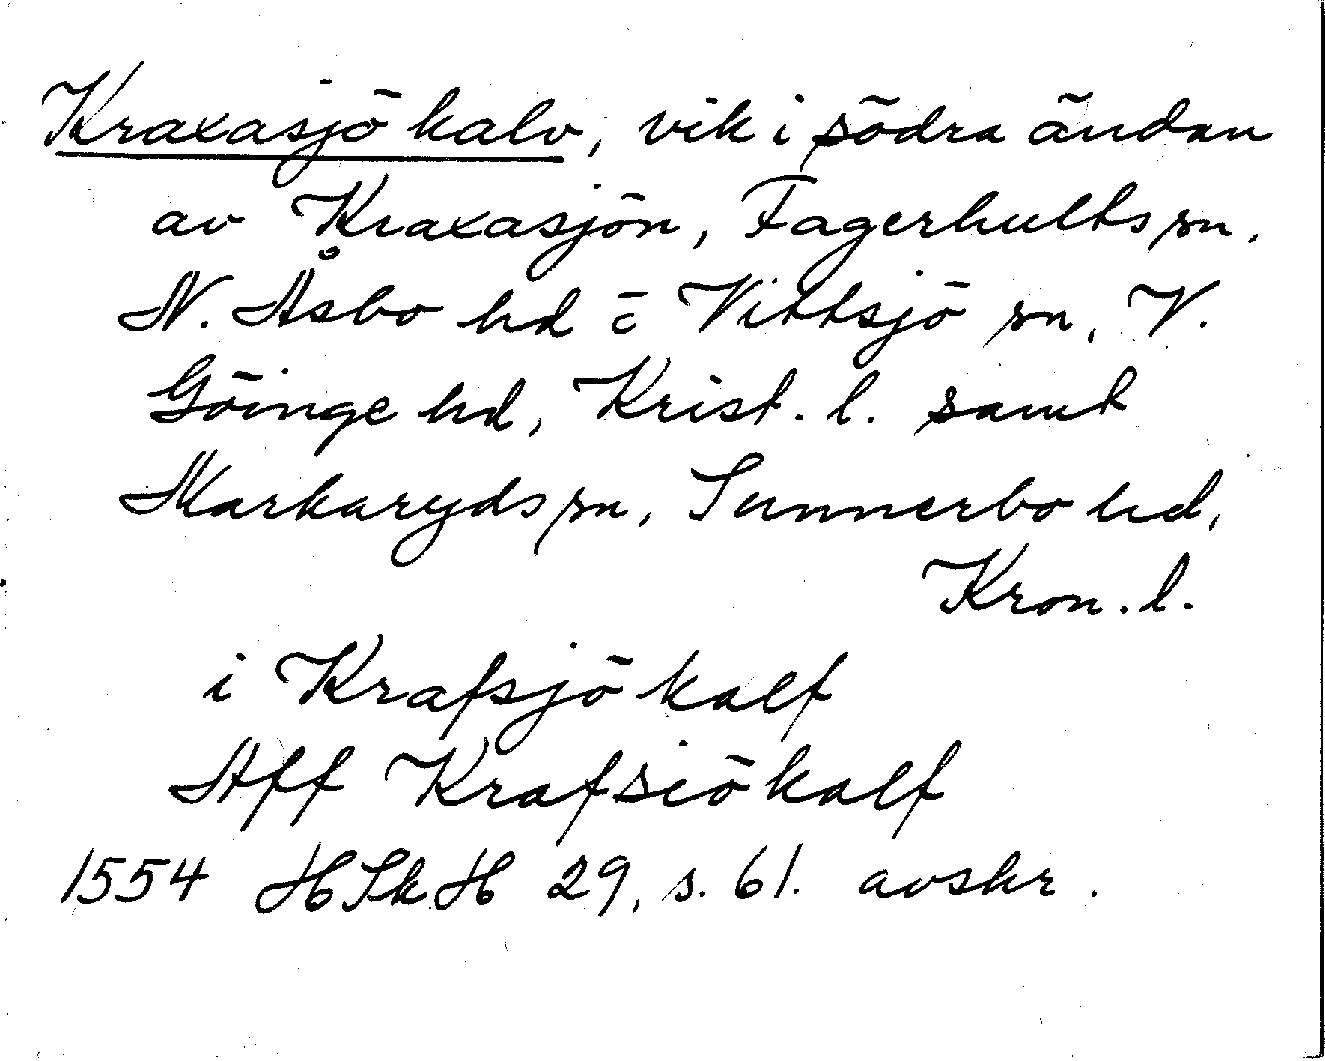 Kraxasjö kalv, vik i södra ändan
av Kraxasjön, Fagerhults sn,
N. Åsbo hd o Vittsjö sn, V.
Göinge hd, Krist. l. samt
Markaryds sn, Sunnerbo hd,
Kron. l.
i Krafsjö kalf
Aff Krafsiö kalf
1554 HSkH 29, s. 61. avskr.